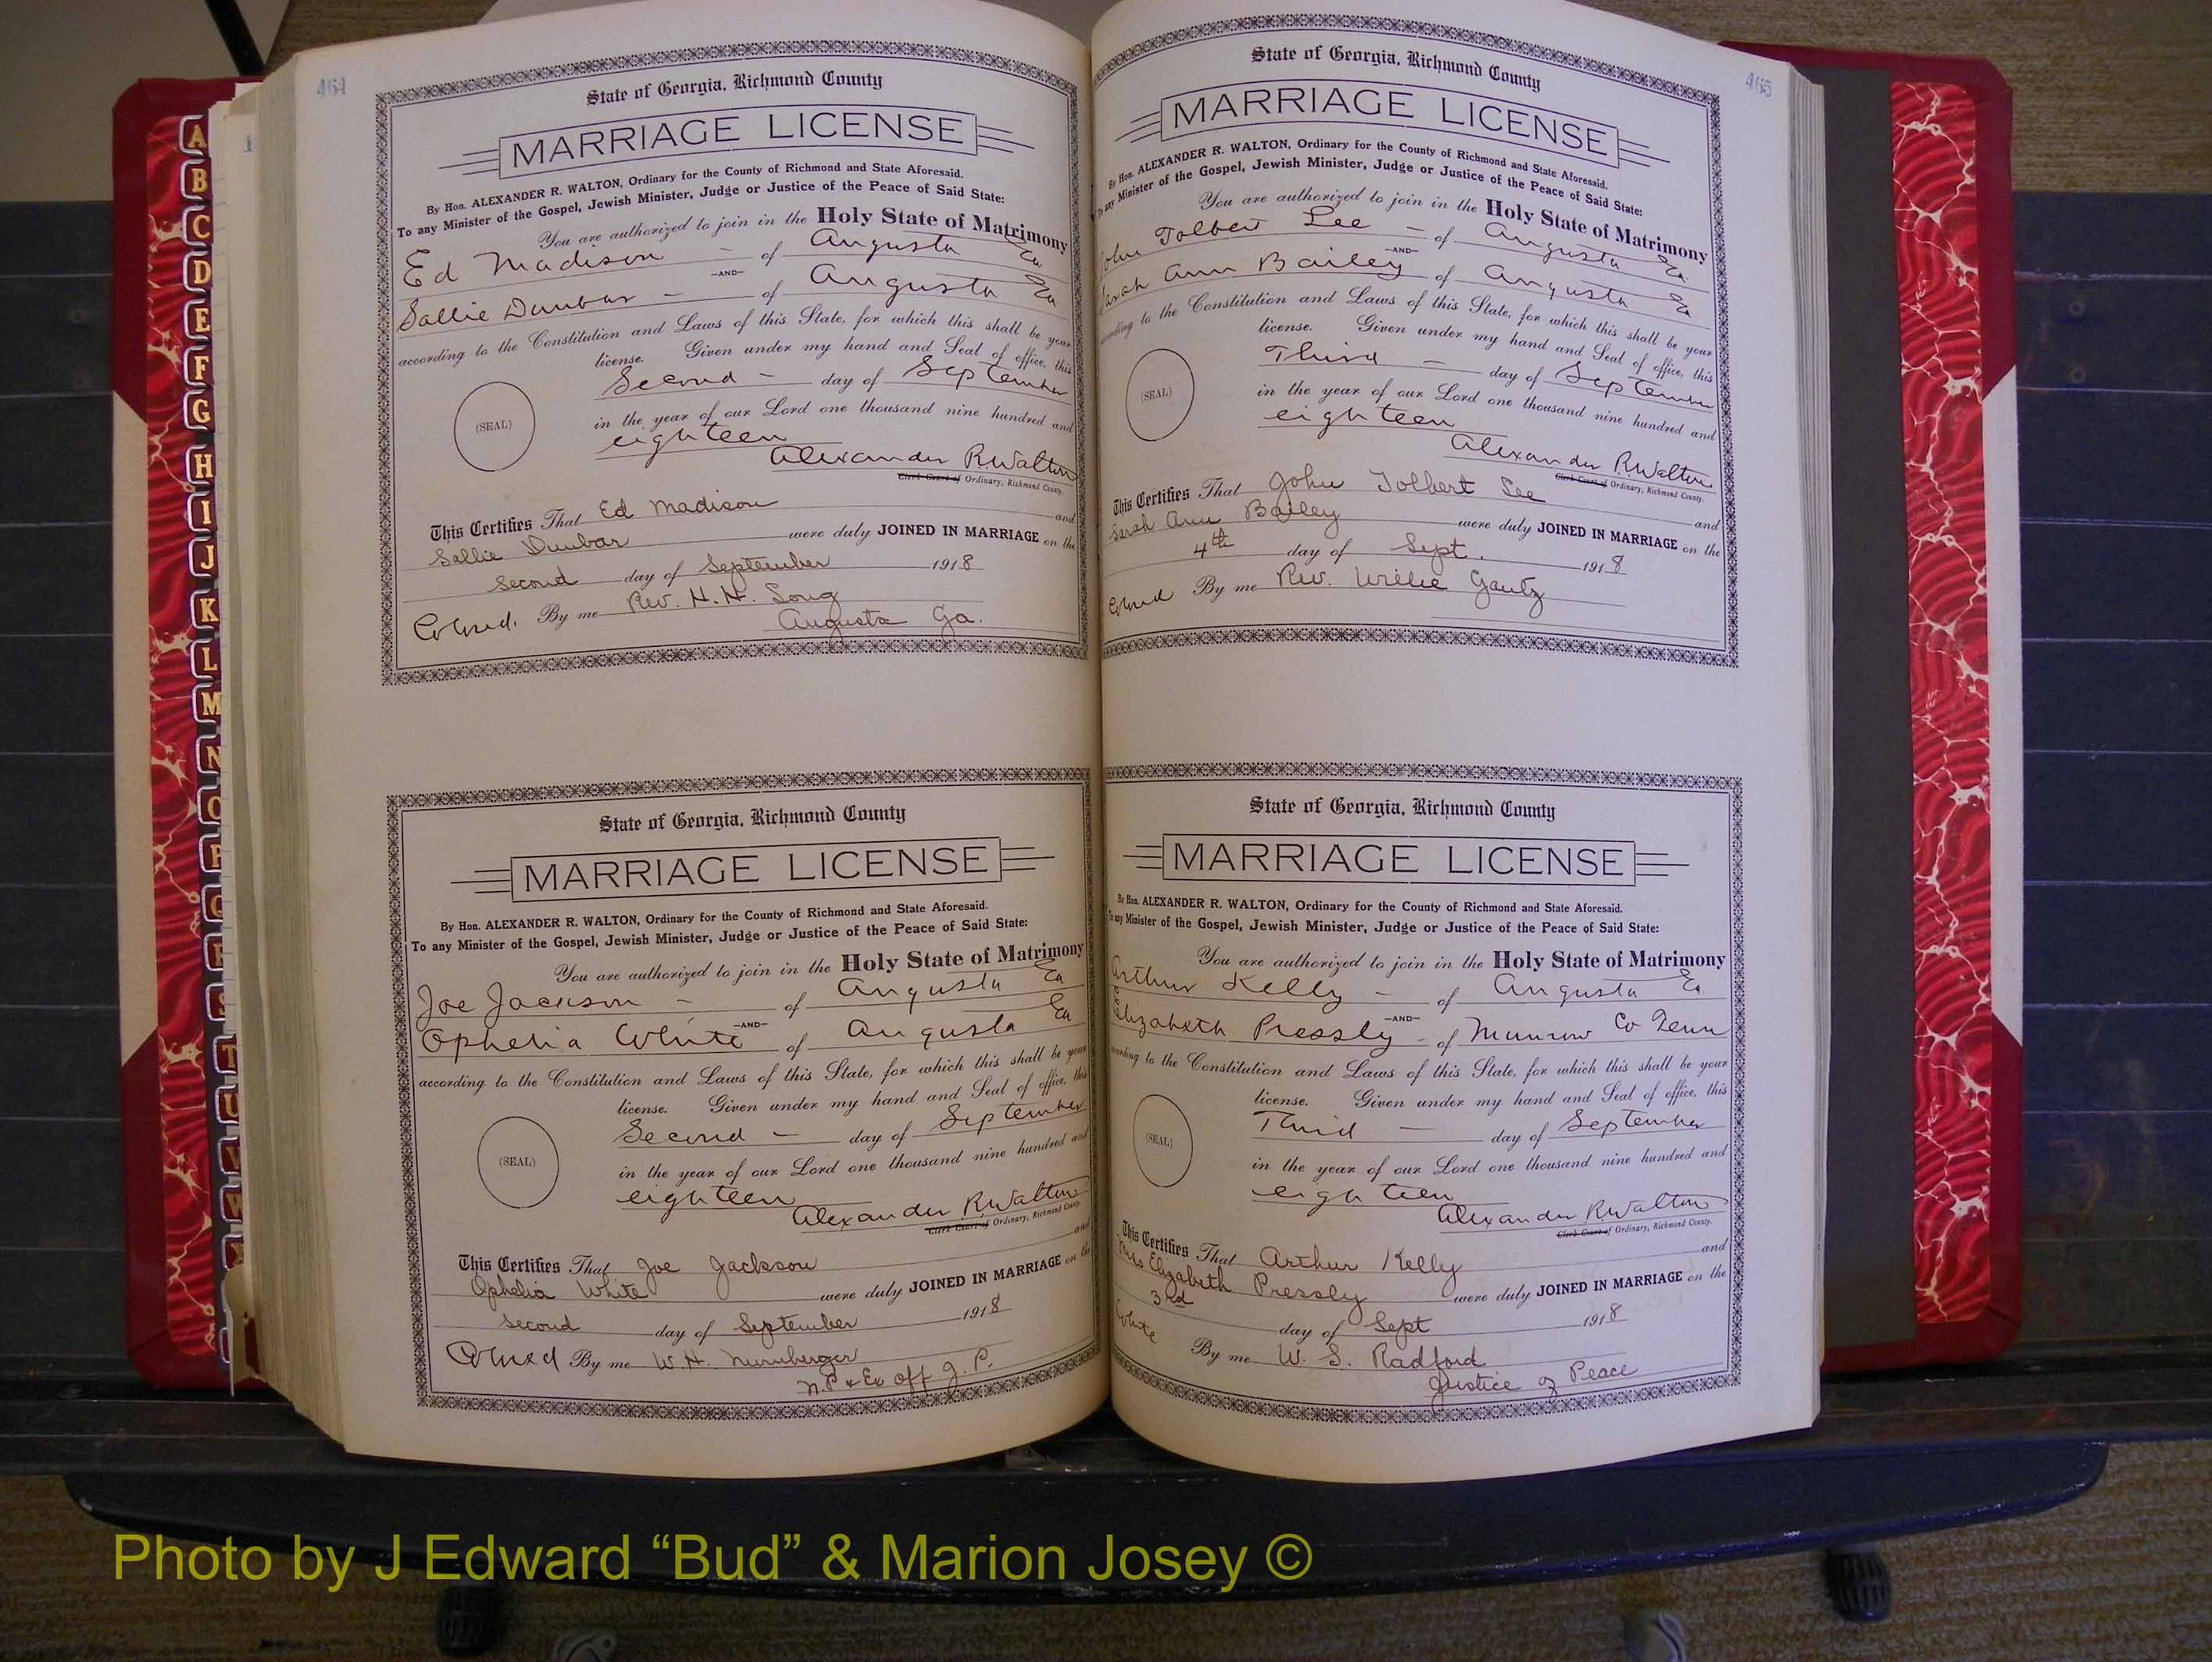 464
State of Georgia, Richmond County
MARRIAGE LICENSE
By Hon. ALEXANDER R. WALTON, Ordinary for the County of Richmond and State Aforesaid.
To any Minister of the Gospel, Jewish Minister, Judge or Justice of the Peace of Said State:
You are authorized to join in the Holy State of Matrimony
Ed Madison - of Augusta Ga
-AND-
Sallie Dunbar - of Augusta Ga
according to the Constitution and Laws of this State, for which this shall be your
license. Given under my hand and Seal of office, this
Second - day of September
(SEAL)
in the year of our Lord one thousand nine hundred and
eighteen
Alexander R Walton
Clerk Court of Ordinary, Richmond County.
This Certifies That Ed Madison and
Sallie Dunbar were duly JOINED IN MARRIAGE on the
second day of September 1918
Colored. By me Rev. H. H. Long
Augusta Ga.
State of Georgia, Richmond County
MARRIAGE LICENSE
By Hon. ALEXANDER R. WALTON, Ordinary for the County of Richmond and State Aforesaid.
To any Minister of the Gospel, Jewish Minister, Judge or Justice of the Peace of Said State:
You are authorized to join in the Holy State of Matrimony
Joe Jackson - of Augusta Ga
-AND-
Ophelia White of Augusta Ga
according to the Constitution and Laws of this State, for which this shall be your
license. Given under my hand and Seal of office, this
Second - day of September
(SEAL)
in the year of our Lord one thousand nine hundred and
eighteen
Alexander R Walton
Clerk Court of Ordinary, Richmond County.
This Certifies That Joe Jackson and
Ophelia White were duly JOINED IN MARRIAGE on the
second day of September 1918
Colored By me W. H. Nurnberger
N.P & Ex off J. P.
465
State of Georgia, Richmond County
MARRIAGE LICENSE
By Hon. ALEXANDER R. WALTON, Ordinary for the County of Richmond and State Aforesaid.
To any Minister of the Gospel, Jewish Minister, Judge or Justice of the Peace of Said State:
You are authorized to join in the Holy State of Matrimony
John Tolbert Lee - of Augusta Ga
-AND-
Sarah Ann Bailey of Augusta Ga
according to the Constitution and Laws of this State, for which this shall be your
license. Given under my hand and Seal of office, this
Third - day of September
(SEAL)
in the year of our Lord one thousand nine hundred and
eighteen
Alexander R Walton
Clerk Court of Ordinary, Richmond County.
This Certifies That John Tolbert Lee and
Sarah Ann Bailey were duly JOINED IN MARRIAGE on the
4th day of Sept. 1918
Colored By me Rev. Willie Gantz
State of Georgia, Richmond County
MARRIAGE LICENSE
By Hon. ALEXANDER R. WALTON, Ordinary for the County of Richmond and State Aforesaid.
To any Minister of the Gospel, Jewish Minister, Judge or Justice of the Peace of Said State:
You are authorized to join in the Holy State of Matrimony
Arthur Kelly - of Augusta Ga.
-AND-
Elizabeth Pressly - of Munrow Co Tenn
according to the Constitution and Laws of this State, for which this shall be your
license. Given under my hand and Seal of office, this
Third - day of September
(SEAL)
in the year of our Lord one thousand nine hundred and
eighteen
Alexander R Walton
Clerk Court of Ordinary, Richmond County.
This Certifies That Arthur Kelly and
Miss Elizabeth Pressly were duly JOINED IN MARRIAGE on the
3rd day of Sept 1918
White By me W. S. Radford
Justice of Peace
A
B
C
D
E
F
G
H
I
J
K
L
M
N
O
P
Q
R
S
T
U
V
W
Photo by J Edward “Bud” & Marion Josey ©